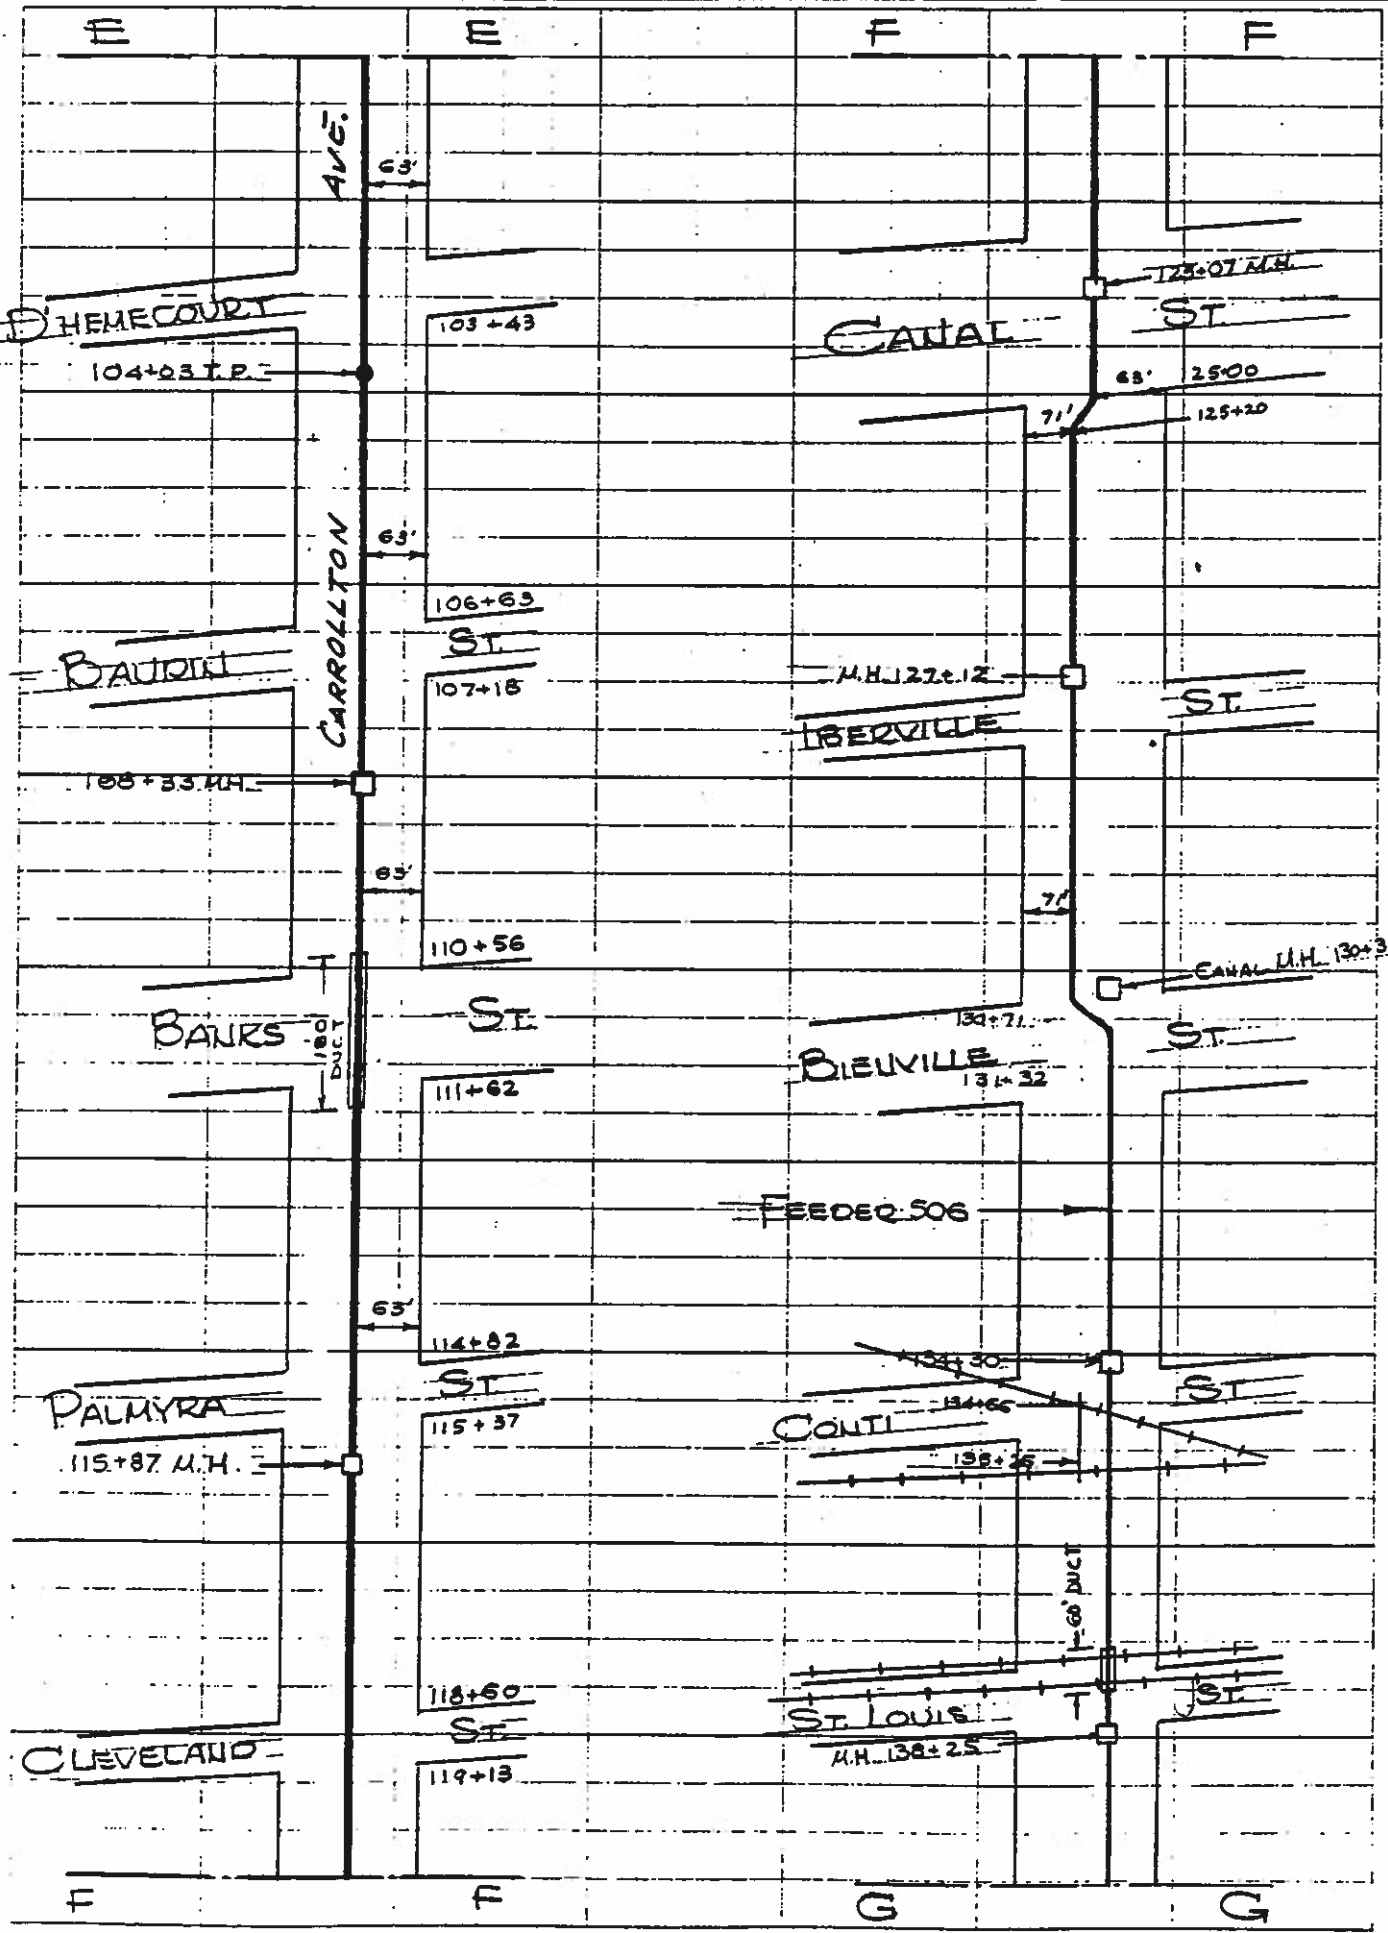 E E F F
AVE.
63'
D'HEMECOURT
103+43
104+03 T.P.
CARROLLTON
63'
106+63
ST.
BAUDIN
107+18
108+33 M.H.
63'
110+56
BANKS
ST.
180'
DUCT
111+62
63'
114+82
ST
PALMYRA
115+37
115+87 M.H.
118+60
ST.
CLEVELAND
119+13
F F
123+07 M.H.
ST.
CANAL
63' 25+00
71' 125+20
M.H. 127+12
ST.
IBERVILLE
71'
CANAL M.H. 130+3
ST.
BIENVILLE
131+32
FEEDER 506
134+30
ST
134+66
CONTI
135+26
60' DUCT
ST. LOUIS
ST.
M.H. 138+25
G G